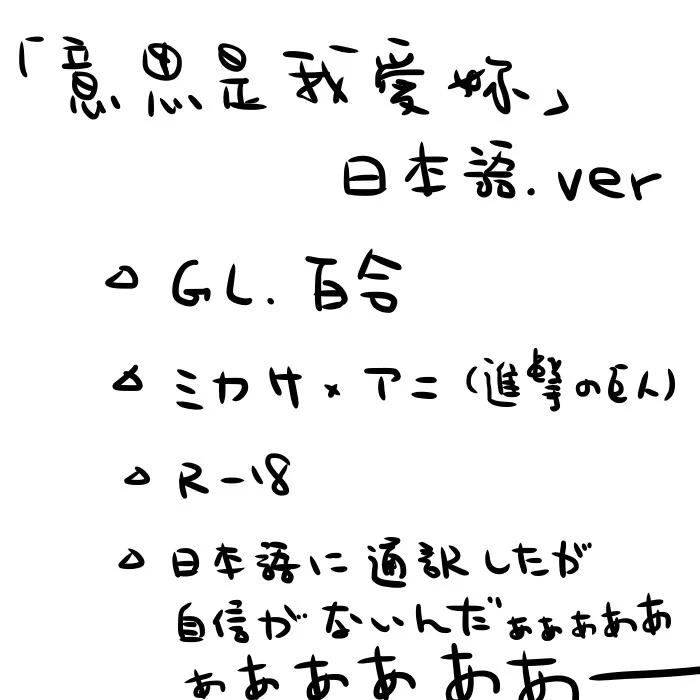 「意思是我愛妳」
日本語.ver
△ GL.百合
△ ミカサ×アニ(進撃の巨人)
△ R-18
△ 日本語に通訳したが
自信がないんだぁぁぁぁあ
ぁあああああー